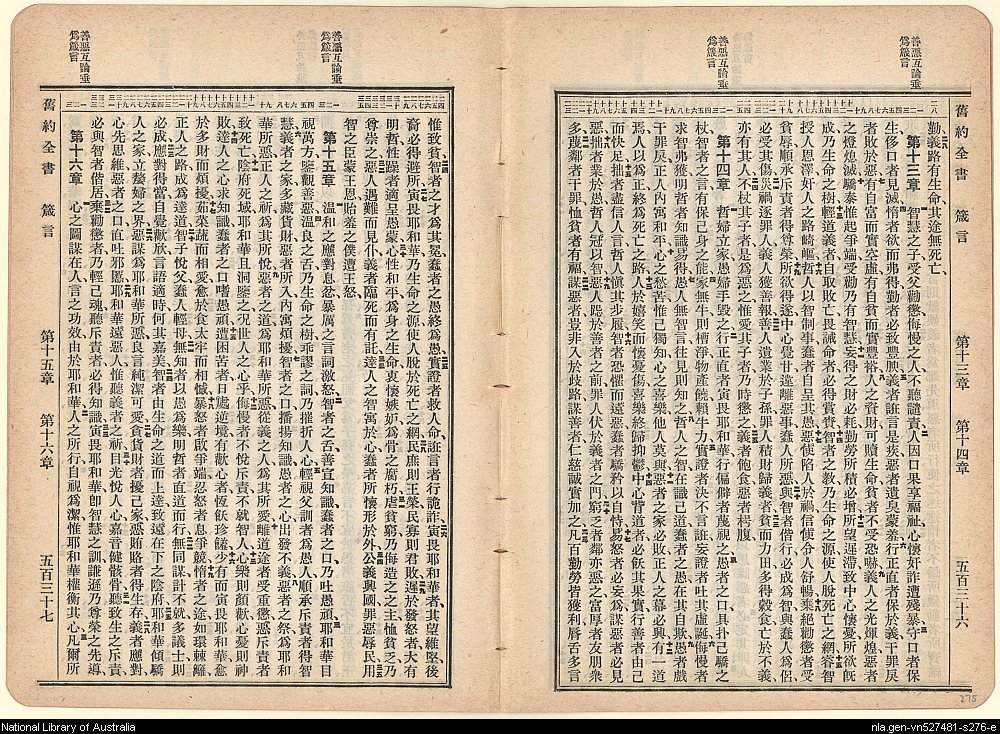 善惡互論垂
爲箴言
善惡互論垂
爲箴言
舊約全書 箴言 第十三章 第十四章 五百三十六
勤義路有生命其途無死亡、
第十三章 智慧之子受父勸懲侮慢之人不聽譴責人因口果享福祉心懷奸詐遭殘暴守口者保
生侈口者見滅惰者欲而弗得勤者必致豐腴義者誑言是疾惡者遺臭蒙羞行正直者保於義干罪戾
者敗於惡有自富而實空虛有自貧而實豐裕人之資財可贖生命貧者不受恐嚇義人之光輝煌惡者
之燈熄滅驕泰惟起爭端受勸乃有智慧妄得之財必耗勤勞所積必增所望遲滯致中心懷憂所欲旣
成乃生命之樹輕道義者自取敗亡畏誡命者必得賞智者之教乃生命之源使人脫於死亡之網睿智
授人恩澤奸人之路崎嶇哲人以知制事蠢者自呈其愚惡使陷人於禍信使令人舒暢棄絕勸懲者受
貧辱順承斥責者得尊榮所欲得遂中心覺甘違離惡事蠢人所憎與智者偕行必成爲智與蠢人爲侶
必受其傷災禍逐罪人義人獲善報善人遺業於子孫罪人積財歸義者貧而力田多得穀食亡於不義
亦有其人不杖其子者是爲惡之惟愛其子者乃時懲之義者飽食惡者枵腹
第十四章 哲婦立家愚婦手毀之行正直者寅畏耶和華行偏僻者蔑視之愚者之口具扑己驕之
杖智者之言有保己身之能家無牛則槽淨物產饒賴牛力實證者決不言誑妄證者吐其虛誕侮慢者
求智弗獲明哲者知識易得愚人無智言往見則知之哲人之智在識己道蠢者之愚在其自欺愚者戲
干罪戾正人內寓和平心之愁苦惟己獨知心之喜樂他人莫與惡者之家必敗正人之幕必興有一道
焉人以爲正終爲死亡之路人於嬉笑而懷憂傷喜樂終歸抑鬱中心背道者必飫其果實行善者由己
而快足拙者盡信人言哲人愼其步履智者恐懼而遠惡愚者驕矜以自恃易怒者必妄爲謀惡者見
惡拙者業於愚哲人冠以智惡人跽於善者之前罪人伏於義者之門窮乏者鄰亦惡之富厚者友朋衆
多蔑鄰者干罪恤貧者有福謀惡者豈非入於歧路謀善者仁慈誠實加之凡百勤勞皆獲利脣舌多言
善惡互論垂
爲箴言
善惡互論垂
爲箴言
惟致貧智者之才爲其冕蠢者之愚終爲愚實證者救人命誑言者行詭詐寅畏耶和華者其望維堅後
裔必得避所寅畏耶和華乃生命之源使人脫於死亡之網民庶則王榮民寡則君敗遲於發怒者大有
明哲性躁者適呈愚蒙心性和平爲身之生命衷懷嫉妒爲骨之腐朽虐貧窮乃侮造之之主恤貧乏乃
尊崇之惡人遇難而見仆義者臨死而有託達人之智寓於心蠢者所懷形於外公義興國罪惡辱民用
智之臣蒙王恩貽羞之僕遭王怒
第十五章 溫和之應對息忿暴厲之言詞激怒智者之舌善宣知識蠢者之口乃吐愚頑耶和華目
視萬方鑒觀善惡溫良之舌乃生命之樹乖謬之詞乃摧折人心輕視父訓者爲愚人順承斥責者得智
慧義者之家多藏貨財惡者所入內寓煩擾智者之口播揚知識愚者之心出發不義惡者之祭爲耶和
華所惡正人之祈爲其所悅惡者之道爲耶和華所惡從義之人爲其所愛離道途者受重懲惡斥責者
致死亡陰府死域耶和華且洞鑒之況世人之心乎侮慢者不悅斥責不就智人心樂則顏歡心憂則神
敗達人之心求知識蠢者之口嗜愚頑遭困苦者日處逆境有歡心者恆飫珍饈少有而寅畏耶和華愈
於多財而煩擾茹菜蔬而相愛愈於食太牢而相憾暴怒者啟爭端忍怒者息爭競惰者之途如環棘籬
正人之路成爲達道智子悅父蠢人輕母無知者以愚爲樂明哲者直道而行無同謀計不就多議士則
必成應對得當自覺歡欣言語適時何其嘉美智者由生命之道而上達致遠在下之陰府耶和華傾驕
人之家立嫠婦之界惡謀爲耶和華所惡良言純潔可愛貪貨財者擾己家惡賄賂者得生存義者應對
心先思維惡者之口直吐邪慝耶和華遠惡人惟聽義者之祈目光悅人心嘉音健骸骨聽致生之斥責
必與智者偕居棄勸懲者乃輕己魂聽斥責者必得知識寅畏耶和華卽智慧之訓謙遜乃尊榮之先導
第十六章 心之圖謀在人言之功效由於耶和華人之所行自視爲潔惟耶和華權衡其心凡爾所
舊約全書 箴言 第十五章 第十六章 五百三十七
275
National Library of Australia
nla.gen-vn527481-s276-e